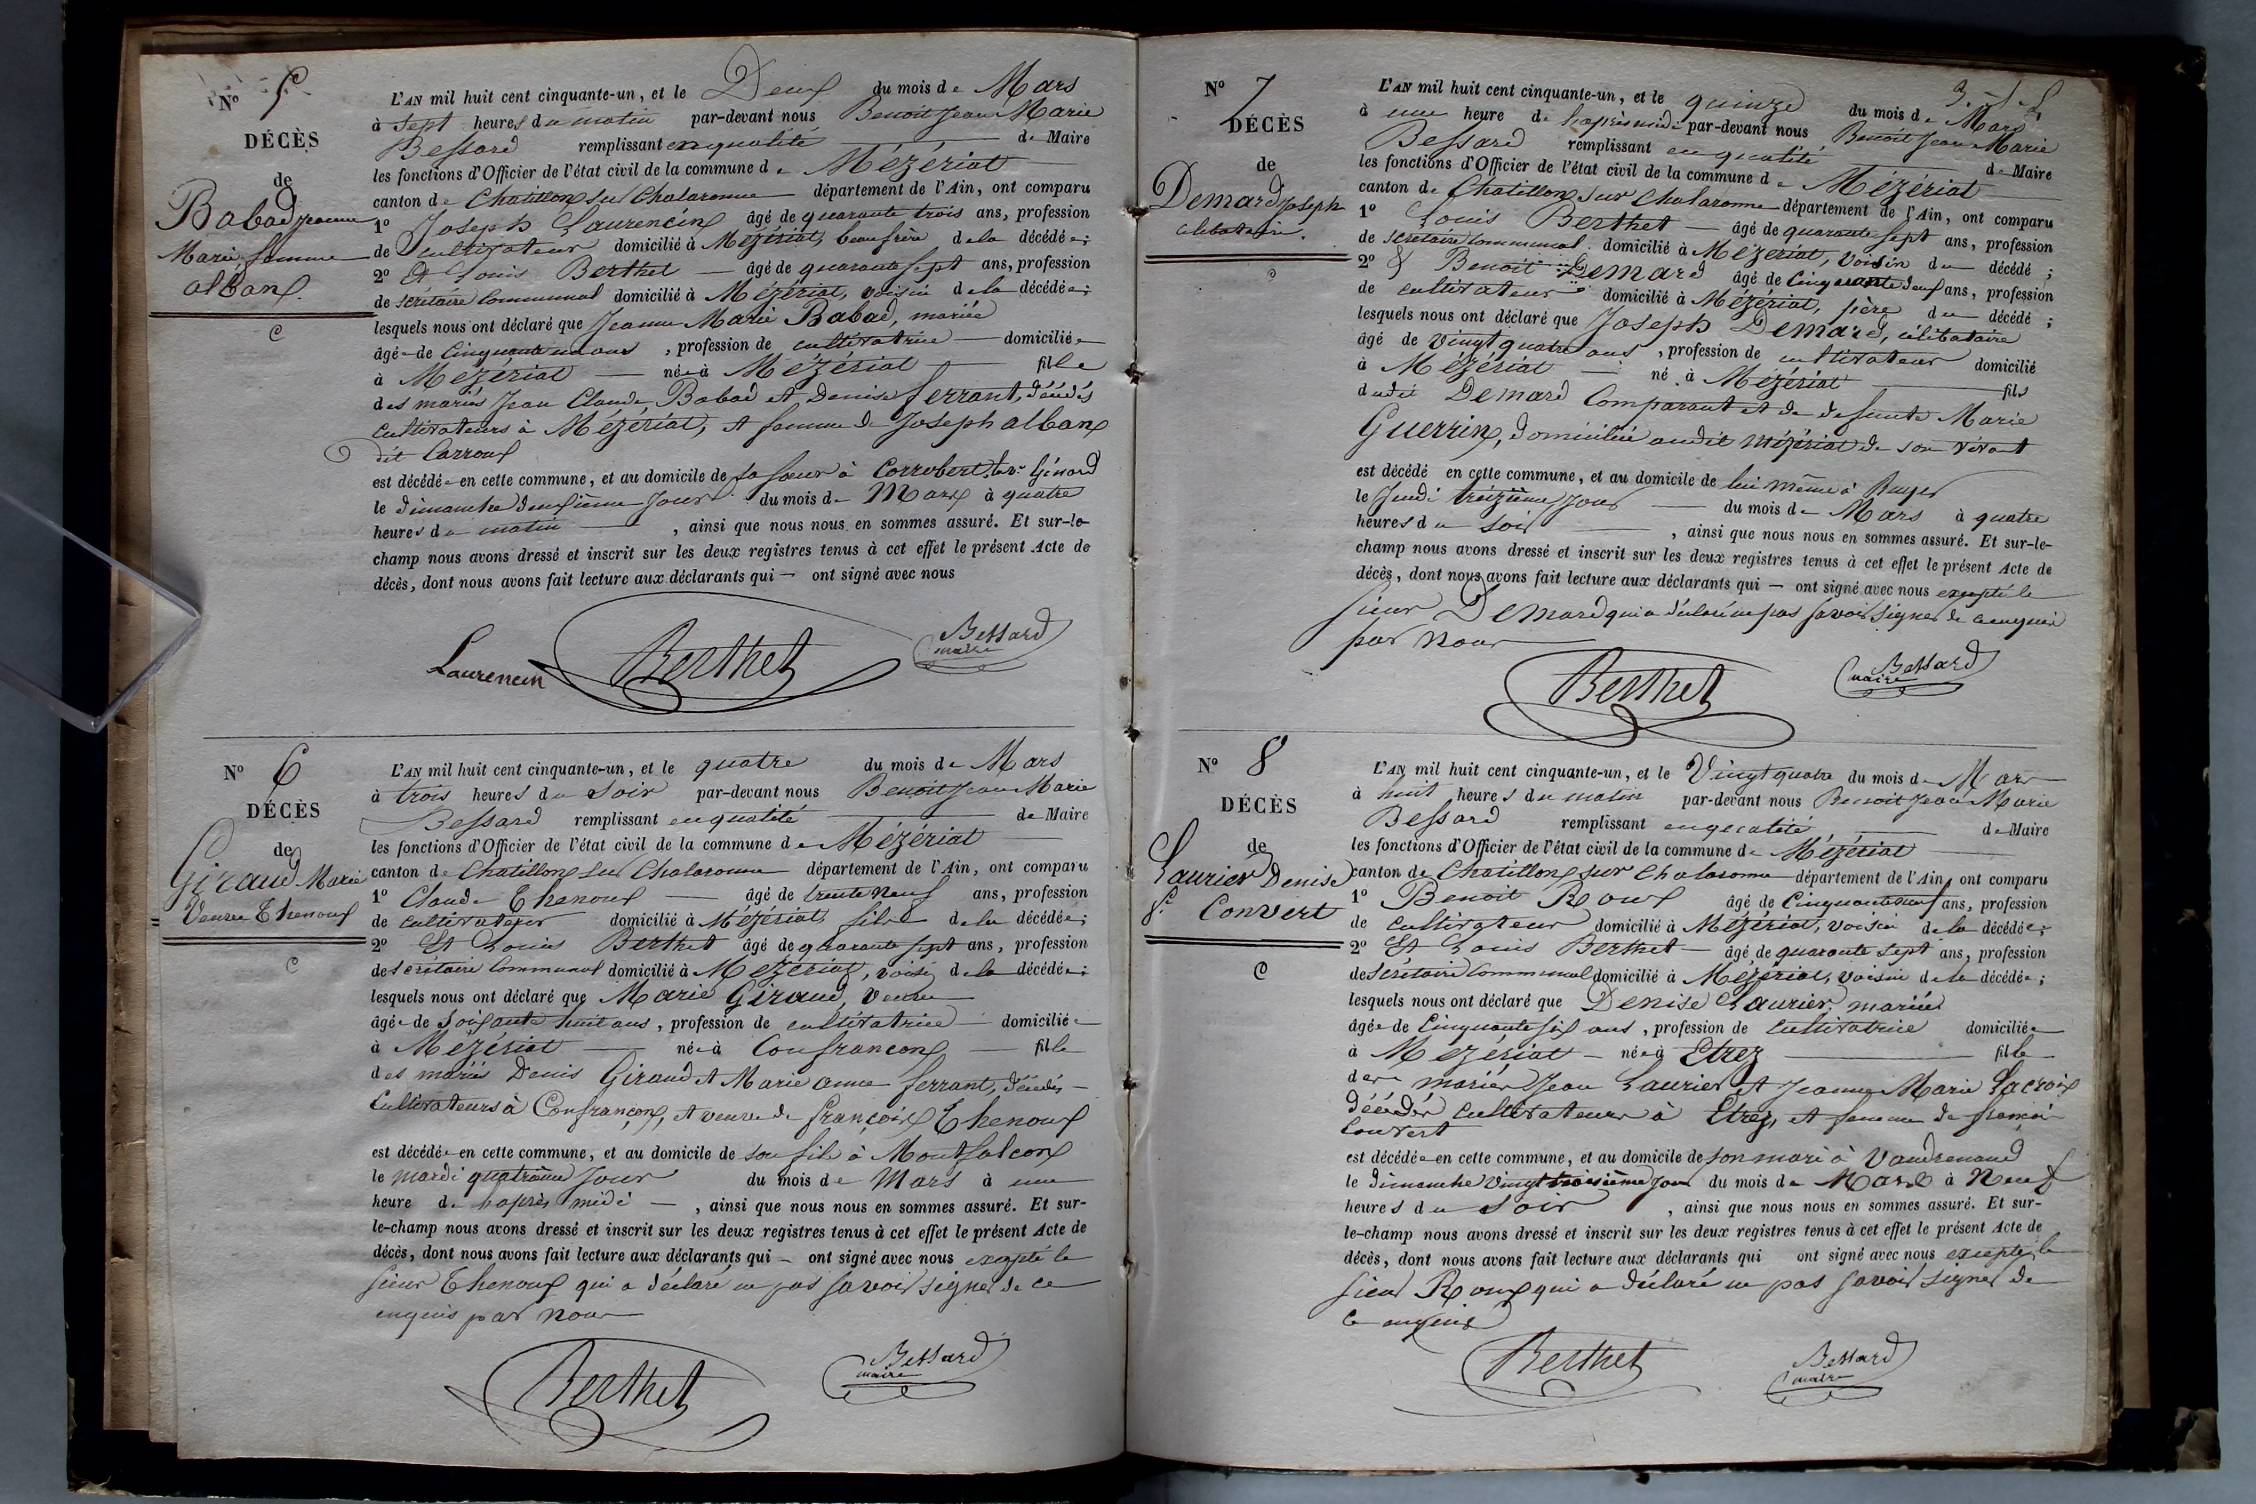 Nº 5
DÉCÈS
de
Babad Jeanne
Marie, femme
alban.
C
L'AN mil huit cent cinquante-un, et le Deux du mois de Mars
à sept heures du matin par-devant nous Benoit Jean Marie
Bessard remplissant en qualité de Maire
les fonctions d'Officier de l'état civil de la commune de Mézériat
canton de Chatillon sur Chalaronne département de l'Ain, ont comparu
1º Joseph Laurencin âgé de quarante trois ans, profession
de cultivateur domicilié à Mézériat, beaufrère de la décédée;
2º Et Louis Berthet âgé de quarante sept ans, profession
de secrétaire communal domicilié à Mézériat, voisin de la décédée;
lesquels nous ont déclaré que Jeanne Marie Babad, mariée
âgée de Cinquante un ans, profession de cultivatrice domiciliée
à Mézériat née à Mézériat fille
des mariés Jean Claude Babad et Denise ferrant, décédés
cultivateurs à Mézériat, et femme de Joseph alban
dit Carroux
est décédée en cette commune, et au domicile de sa sœur à Corrobert,
le dimanche deuxième Jour du mois de Mars à quatre
heures du matin, ainsi que nous nous en sommes assuré. Et sur-le-
champ nous avons dressé et inscrit sur les deux registres tenus à cet effet le présent Acte de
décès, dont nous avons fait lecture aux déclarants qui — ont signé avec nous
Laurencin Berthet Bessard
maire
Nº 6
DÉCÈS
de
Giraud Marie
Veuve Thenoux
C
L'AN mil huit cent cinquante-un, et le quatre du mois de Mars
à trois heures du soir par-devant nous Benoit Jean Marie
Bessard remplissant en qualité de Maire
les fonctions d'Officier de l'état civil de la commune de Mézériat
canton de Chatillon sur Chalaronne département de l'Ain, ont comparu
1º Claude Thenoux âgé de trente neuf ans, profession
de cultivateur domicilié à Mézériat, fils de la décédée;
2º Et Louis Berthet âgé de quarante sept ans, profession
de secrétaire communal domicilié à Mézériat, voisin de la décédée;
lesquels nous ont déclaré que Marie Giraud, veuve
âgée de Soixante huit ans, profession de cultivatrice domiciliée
à Mézériat née à Confrançon fille
des mariés Denis Giraud et Marie anne ferrant, décédés
cultivateurs à Confrançon, et veuve de françois Thenoux
est décédée en cette commune, et au domicile de son fils à Montfalcon
le mardi quatrième Jour du mois de Mars à une
heure de l'après midi, ainsi que nous nous en sommes assuré. Et sur-
le-champ nous avons dressé et inscrit sur les deux registres tenus à cet effet le présent Acte de
décès, dont nous avons fait lecture aux déclarants qui — ont signé avec nous excepté le
sieur Thenoux qui a déclaré ne pas savoir signer de ce
enquis par nous
Berthet Bessard
maire
Nº 7
DÉCÈS
de
Demard Joseph
célibataire.
C
L'AN mil huit cent cinquante-un, et le quinze du mois de Mars
à une heure de l'après midi par-devant nous Benoit Jean Marie
Bessard remplissant en qualité de Maire
les fonctions d'Officier de l'état civil de la commune de Mézériat
canton de Chatillon sur Chalaronne département de l'Ain, ont comparu
1º Louis Berthet âgé de quarante sept ans, profession
de secrétaire communal domicilié à Mézériat, voisin du décédé;
2º & Benoit Demard âgé de Cinquante deux ans, profession
de cultivateur domicilié à Mézériat, père du décédé;
lesquels nous ont déclaré que Joseph Demard, célibataire
âgé de vingt quatre ans, profession de cultivateur domicilié
à Mézériat né à Mézériat fils
dudit Demard Comparant et de defunte Marie
Guerrin, domiciliée audit Mézériat de son vivant
est décédé en cette commune, et au domicile de lui même à
le Jeudi treizième Jour du mois de Mars à quatre
heures du soir, ainsi que nous nous en sommes assuré. Et sur-le-
champ nous avons dressé et inscrit sur les deux registres tenus à cet effet le présent Acte de
décès, dont nous avons fait lecture aux déclarants qui — ont signé avec nous excepté le
sieur Demard qui a déclaré ne pas savoir signer de ce enquis
par nous
Berthet Bessard
maire
Nº 8
DÉCÈS
de
Laurier Denise
fe Convert
C
L'AN mil huit cent cinquante-un, et le Vingt quatre du mois de Mars
à huit heures du matin par-devant nous Benoit Jean Marie
Bessard remplissant en qualité de Maire
les fonctions d'Officier de l'état civil de la commune de Mézériat
canton de Chatillon sur Chalaronne département de l'Ain, ont comparu
1º Benoit Roux âgé de Cinquante ans, profession
de cultivateur domicilié à Mézériat, voisin de la décédée;
2º Et Louis Berthet âgé de quarante sept ans, profession
de secrétaire communal domicilié à Mézériat, voisin de la décédée;
lesquels nous ont déclaré que Denise Laurier, mariée
âgée de Cinquante six ans, profession de cultivatrice domiciliée
à Mézériat née à Etrez fille
des mariés Jean Laurier et Jeanne Marie Lacroix
décédés cultivateurs à Etrez, et femme de françois
Convert
est décédée en cette commune, et au domicile de son mari à Vaudrenand
le dimanche vingt troisième jour du mois de Mars à Neuf
heures du soir, ainsi que nous nous en sommes assuré. Et sur-
le-champ nous avons dressé et inscrit sur les deux registres tenus à cet effet le présent Acte de
décès, dont nous avons fait lecture aux déclarants qui ont signé avec nous excepté le
sieur Roux qui a déclaré ne pas savoir signer de
ce enquis
Berthet Bessard
maire